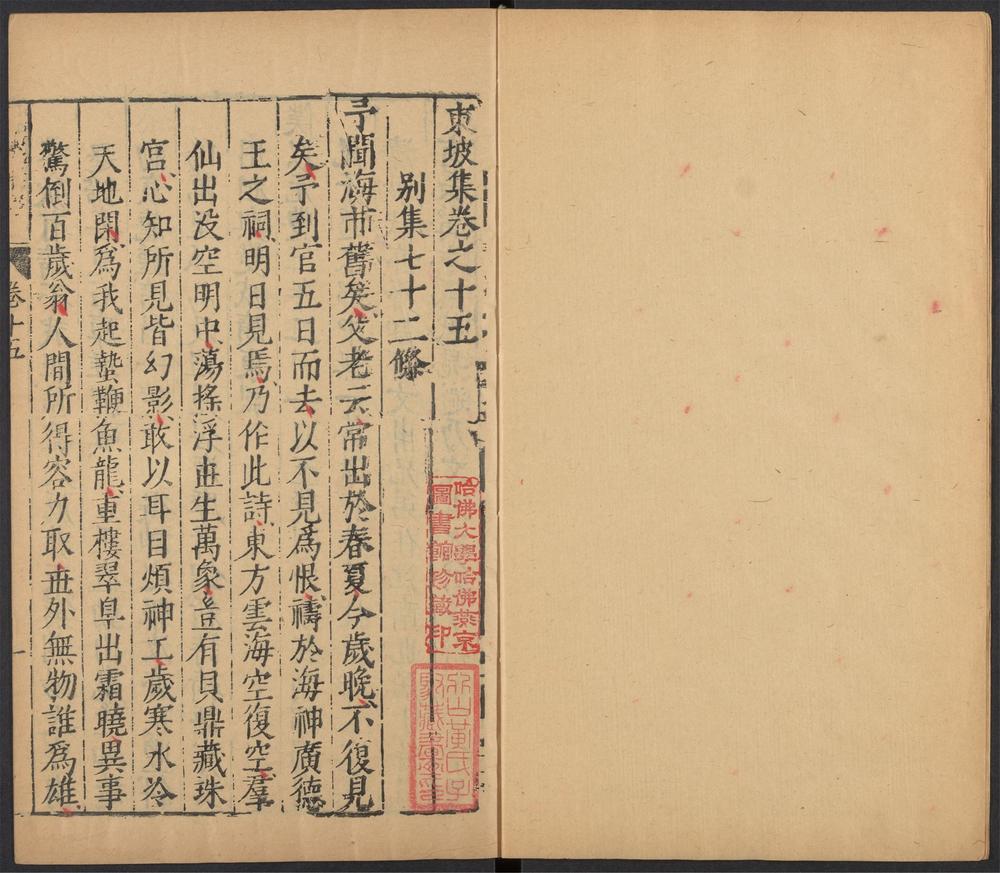 東坡集卷之十五
别集七十二條
予聞海市舊矣父老云常出於春夏今歲晚不復見
矣予到官五日而去以不見爲恨禱於海神廣德
王之祠明日見焉乃作此詩東方雲海空復空羣
仙出没空明中蕩搖浮丗生萬象豈有貝闕藏珠
宫心知所見皆幻影敢以耳目煩神工歲寒水冷
天地閉爲我起蟄鞭魚龍重樓翠阜出霜曉異事
驚倒百歲翁人間所得容力取丗外無物誰爲雄
卷十五
一
哈佛大學哈佛燕京
圖書館珍藏印